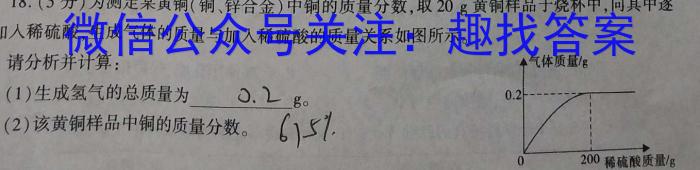 18.(5分)为测定某黄铜(铜、锌合金)中铜的质量分数,取20 g黄铜样品于烧杯中,向其中逐
加入稀硫酸,生成气体的质量与加入稀硫酸的质量关系如图所示。
微信公众号关注：趣找答案
请分析并计算:
(1)生成氢气的总质量为 0.2 g。
(2)该黄铜样品中铜的质量分数。
气体质量/g
0.2
0
200
稀硫酸质量/g